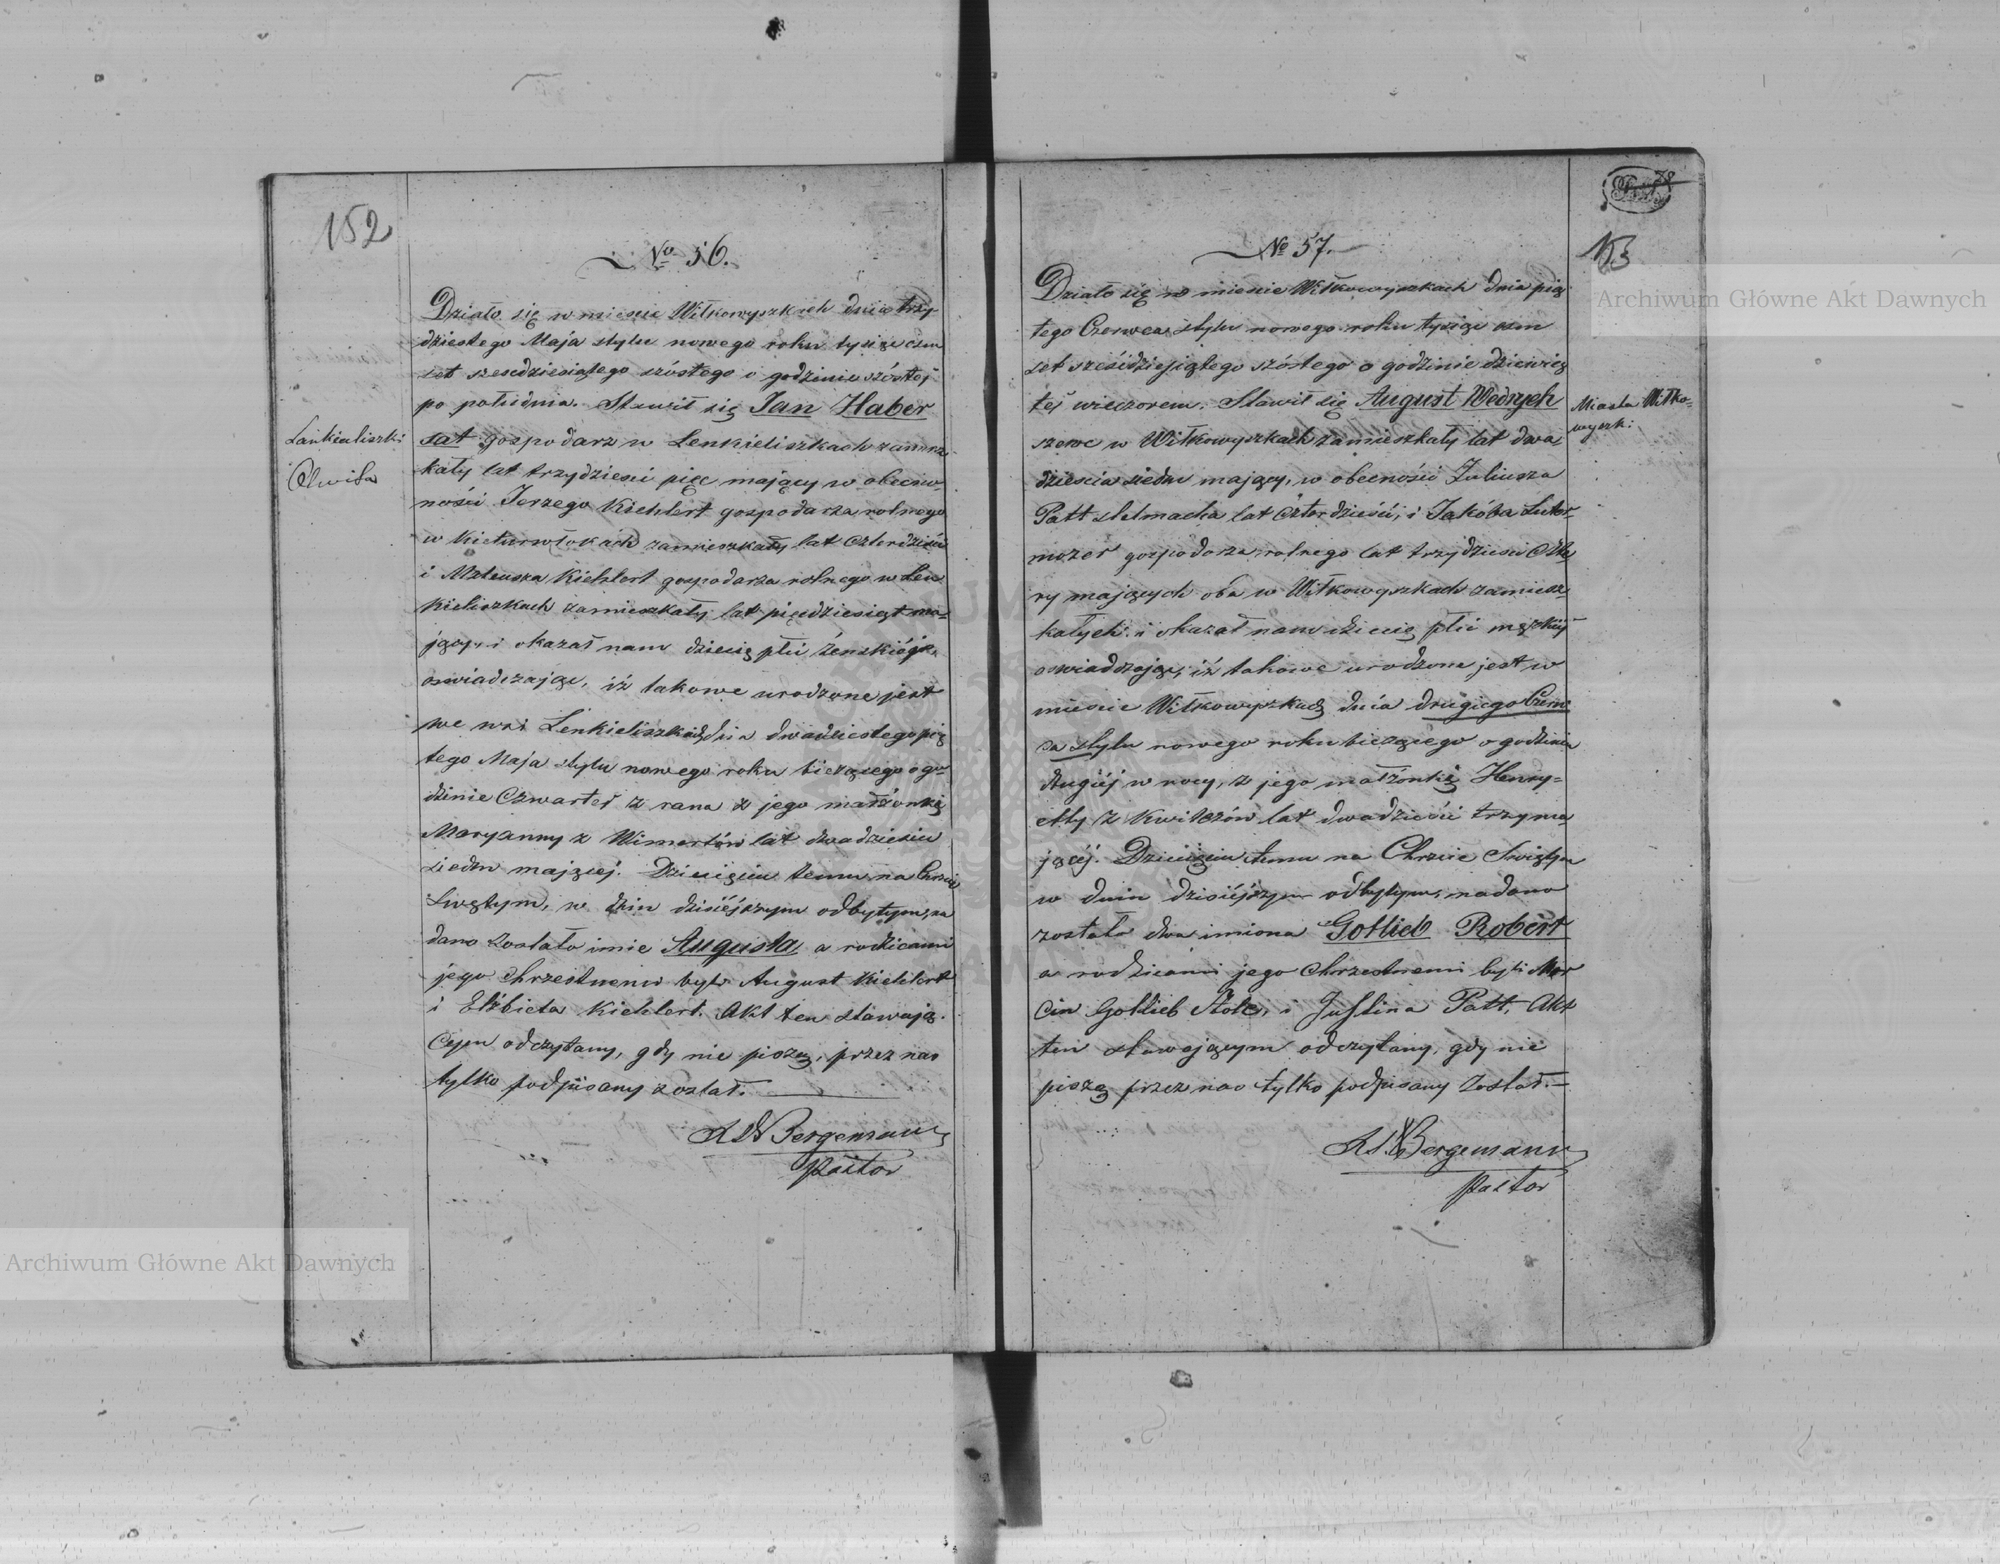 152
No 56.
Działo się w mieście Wiłkowyszkach dnia trzy-
dziestego Maja stylu nowego roku tysiąc ośm
set sześdziesiątego szóstego o godzinie szóstej
po południu. Stawił się Jan Haber
sat gospodarz w Lenkieliszkach zamiesz-
kały lat trzydzieści pięc mający w obecno-
ności Jerzego Kiehlert gospodarza rolnego
w zamieszkały lat czterdzieści
i Mateusza Kiehlert gospodarza rolnego w Len
kieliszkach zamieszkały lat pięćdziesiąt ma-
jący i okazał nam dziecię płci żeńskiéj
oswiadczając, iż takowe urodzone jest
we wsi Lenkieliszkach dnia dwudziestego pią
tego Maja stylu nowego roku bieżącego o go-
dzinie Czwartej z rana z jego małżonki
Maryanny z lat dwadzieścia
siedm mającej. Dziecięciu temu na Chrzcie
Swiętym, w dniu dzisiéjszym odbytym, na
dano zostało imie Augusta a rodzicami
jego chrzestnemi byli August Kiehlert
i Elżbieta Kiehlert. Akt ten stawają-
cym odczytany, gdy nie piszą, przez nas
tylko podpisany został.
Bergemann
Pastor
Lankieliszki
Olwita
No 57.
153
Działo się w mieście Wiłkowyszkach dnia pią
tego Czerwca stylu nowego roku tysiąc osm
set sześćdziesiątego szóstego o godzinie dziewią
téj wieczorem. Stawił się August Wedrych
szewc w Wiłkowyszkach zamieszkały lat dwa
dzieścia siedm mający, w obecności Juliusza
Patt stelmacha lat czterdzieści, i Jakóba Luter-
mozer gospodarza rolnego lat trzydzieści czte
ry mających oba w Wiłkowyszkach zamiesz-
kałych i okazał nam dziecię płci męzkiéj
oswiadczając, iż takowe urodzone jest w
mieście Wiłkowyszkach dnia drugiego Czerw
ca stylu nowego roku bieżącego o godzinie
drugiéj w nocy, z jego małżonki Henry-
etty z lat dwadzieści trzy ma
jącéj. Dziecięciu temu na Chrzcie Swiętym
w dniu dzisiéjszym odbytym, nadano
zostało dwa imiona Gotlieb Robert
a rodzicami jego chrzestnemi byli Mar
cin Gottlieb Stole, i Justina Patt, Akt
ten stawającym odczytany, gdy nie
piszą przez nas tylko podpisany został.—
Bergemann
Pastor
Miasta Wiłko-
wyszki
Archiwum Główne Akt Dawnych
Archiwum Główne Akt Dawnych